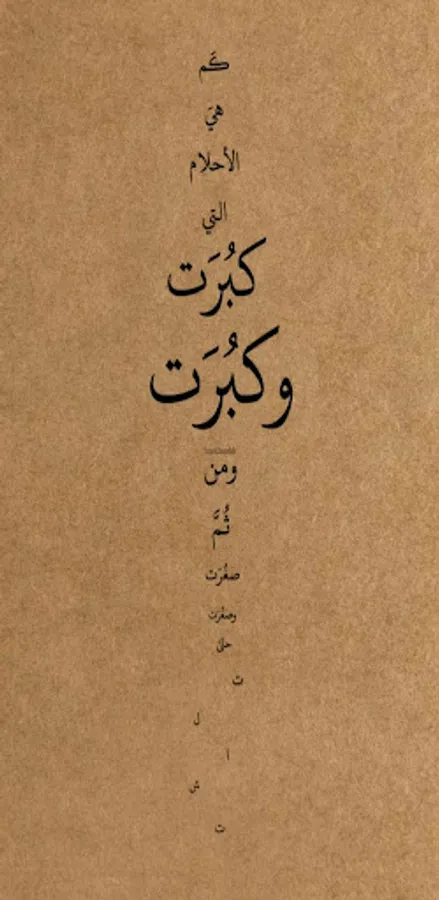 كَم
هيَ
الأحلام
التي
كبُرَت
وكبُرَت
ومن
ثُمَّ
صغُرَت
وصغُرَت
حتى
ت
ل
ا
ش
ت